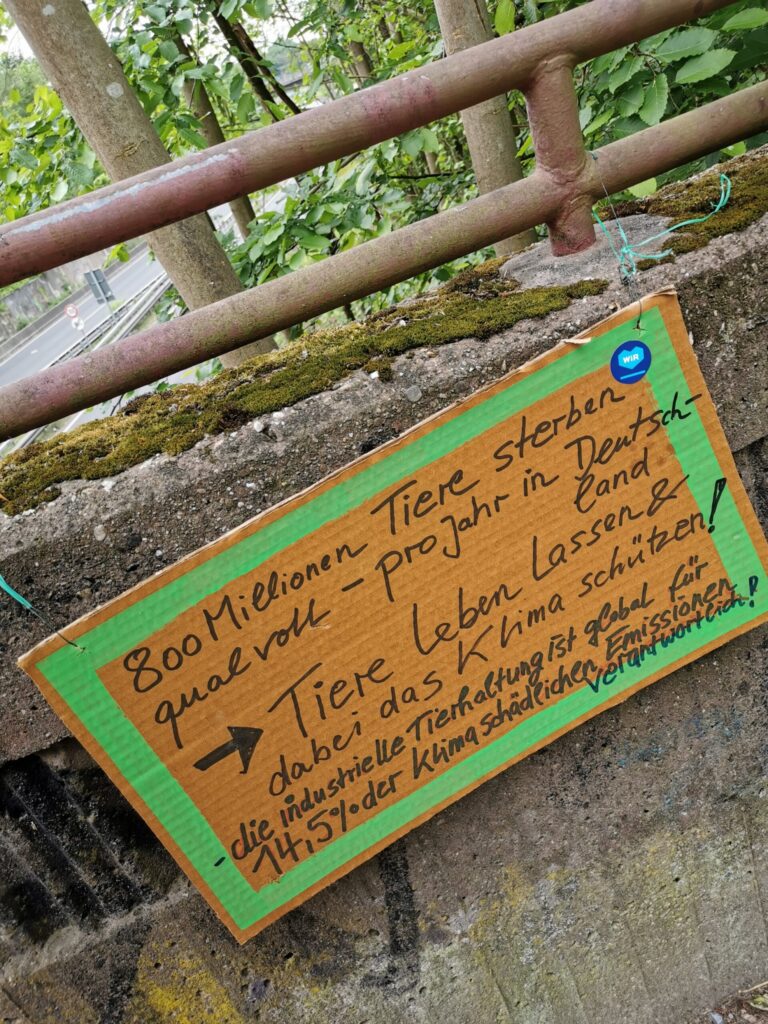 WiR
800 Millionen Tiere sterben
qualvoll - pro Jahr in Deutsch-
land
→ Tiere leben lassen &
dabei das Klima schützen!
- die industrielle Tierhaltung ist global für
14,5% der Klima schädlichen Emissionen
verantwortlich!